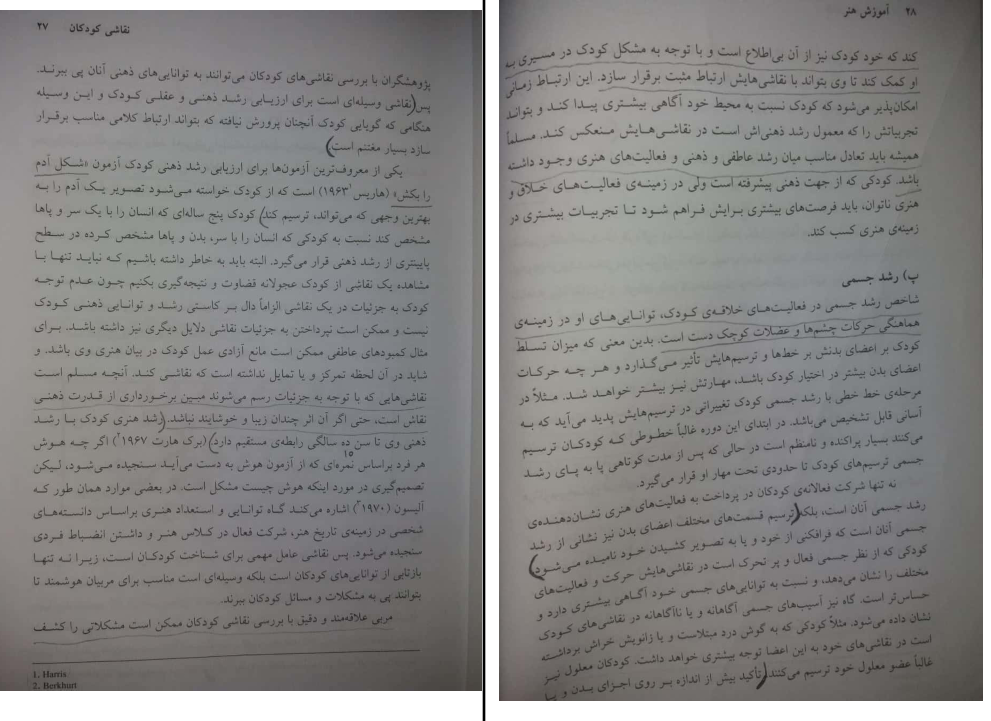 نقاشی کودکان ۲۷
پژوهشگران با بررسی نقاشی‌های کودکان می‌توانند به توانایی‌های ذهنی آنان پی ببرنـد.
پس نقاشی وسیله‌ای است برای ارزیـابی رشـد ذهنـی و عقلـی کـودک و ایـن وسـیله
هنگامی که گویایی کودک آنچنان پرورش نیافته که بتواند ارتباط کلامی مناسب برقـرار
سازد بسیار مغتنم است)
یکی از معروف‌ترین آزمون‌ها برای ارزیابی رشد ذهنی کودک آزمون «شـکل آدم
را بکش» (هاریس۱ ۱۹۶۳) است که از کودک خواسته مـی‌شـود تصـویر یـک آدم را بـه
بهترین وجهی که می‌تواند، ترسیم کند) کودک پنج ساله‌ای که انسان را با یک سر و پاها
مشخص کند نسبت به کودکی که انسان را با سر، بدن و پاها مشخص کـرده در سـطح
پایینتری از رشد ذهنی قرار می‌گیرد. البته باید به خاطر داشته باشـیم کـه نبایـد تنهـا بـا
مشاهده یک نقاشی از کودک عجولانه قضاوت و نتیجه‌گیری بکنیم چـون عـدم توجـه
کودک به جزئیات در یک نقاشی الزاماً دال بـر کاسـتی رشـد و توانـایی ذهنـی کـودک
نیست و ممکن است نپرداختن به جزئیات نقاشی دلایل دیگری نیز داشته باشـد. بـرای
مثال کمبودهای عاطفی ممکن است مانع آزادی عمل کودک در بیان هنری وی باشد. و
شاید در آن لحظه تمرکز و یا تمایل نداشته است که نقاشـی کنـد. آنچـه مسـلم اسـت
نقاشی‌هایی که با توجه به جزئیات رسم می‌شوند مبـین برخـورداری از قـدرت ذهنـی
نقاش است، حتی اگر آن اثر چندان زیبا و خوشایند نباشد. (رشد هنری کودک بـا رشـد
ذهنی وی تا سن ده سالگی رابطه‌ی مستقیم دارد) (برک هارت ۱۹۶۷۲) اگر چـه هـوش
هر فرد براساس نمره‌ای که از آزمون هوش به دست می‌آیـد سـنجیده مـی‌شـود، لـیکن
تصمیم‌گیری در مورد اینکه هوش چیست مشکل است. در بعضی موارد همان طور کـه
آلیسـون (۱۹۷۰۳) اشاره می‌کنـد گـاه توانـایی و اسـتعداد هنـری براسـاس دانسـته‌هـای
شخصی در زمینه‌ی تاریخ هنر، شرکت فعال در کـلاس هنـر و داشـتن انضـباط فـردی
سنجیده می‌شود. پس نقاشی عامل مهمی برای شـناخت کودکـان اسـت، زیـرا نـه تنهـا
بازتابی از توانایی‌های کودکان است بلکه وسیله‌ای است مناسب برای مربیان هوشمند تا
بتوانند پی به مشکلات و مسائل کودکان ببرند.
مربی علاقه‌مند و دقیق با بررسی نقاشی کودکان ممکن است مشکلاتی را کشـف
1. Harris
2. Berkhart
۲۸ آموزش هنر
کند که خود کودک نیز از آن بی‌اطلاع است و با توجه به مشکل کودک در مسـیری بـه
او کمک کند تا وی بتواند با نقاشی‌هایش ارتباط مثبت برقرار سازد. این ارتبـاط زمـانی
امکان‌پذیر می‌شود که کودک نسبت به محیط خود آگاهی بیشـتری پیـدا کنـد و بتوانـد
تجربیاتش را که معمول رشد ذهنی‌اش است در نقاشـی‌هـایش مـنعکس کنـد. مسـلماً
همیشه باید تعادل مناسب میان رشد عاطفی و ذهنی و فعالیت‌های هنری وجـود داشته
باشد. کودکی که از جهت ذهنی پیشرفته است ولی در زمینـه‌ی فعالیـت‌هـای خـلاق و
هنری ناتوان، باید فرصت‌های بیشتری بـرایش فـراهم شـود تـا تجربیـات بیشـتری در
زمینه‌ی هنری کسب کند.
پ) رشد جسـمی
شاخص رشد جسـمی در فعالیـت‌هـای خلاقـه‌ی کـودک، توانـایی‌هـای او در زمینـه‌ی
هماهنگی حرکات چشم‌ها و عضلات کوچک دست است. بدین معنی که میزان تسـلط
کودک بر اعضای بدنش بر خط‌ها و ترسیم‌هایش تأثیر مـی‌گـذارد و هـر چـه حرکـات
اعضای بدن بیشتر در اختیار کودک باشـد، مهـارتش نیـز بیشـتر خواهـد شـد. مـثلاً در
مرحله‌ی خط خطی با رشد جسمی کودک تغییراتی در ترسیم‌هایش پدید مـی‌آید که بـه
آسانی قابل تشخیص می‌باشد. در ابتدای این دوره غالباً خطـوطی کـه کودکـان ترسـیم
می‌کنند بسیار پراکنده و نامنظم است در حالی که پس از مدت کوتاهی پا بـه پـای رشـد
جسمی ترسیم‌های کودک تا حدودی تحت مهار او قرار می‌گیرد.
نه تنها شرکت فعالانه‌ی کودکان در پرداخت به فعالیت‌های هنری نشـان‌دهنـده‌ی
رشد جسمی آنان است، بلکه (ترسیم قسمت‌های مختلف اعضای بدن نیز نشانی از رشد
جسمی آنان است که فرافکنی از خود و پا به تصـویر کشـیدن خـود نامیـده مـی‌شـود)
کودکی که از نظر جسمی فعال و پر تحرک است در نقاشی‌هایش حرکت و فعالیـت‌های
مختلف را نشان می‌دهد، و نسبت به توانایی‌های جسمی خـود آگـاهی بیشـتری دارد و
حساس‌تر است. گاه نیز آسیب‌های جسمی آگاهانه و یا ناآگاهانه در نقاشی‌هـای کـودک
نشان داده می‌شود. مثلاً کودکی که به گوش درد مبتلاست و یا زانویش خراش برداشته
است در نقاشی‌های خود به این اعضا توجه بیشتری خواهد داشت. کودکان معلول نیـز
غالباً عضو معلول خود ترسیم می‌کنند. (تأکید بیش از اندازه بـر روی اجـزای بـدن و یـا